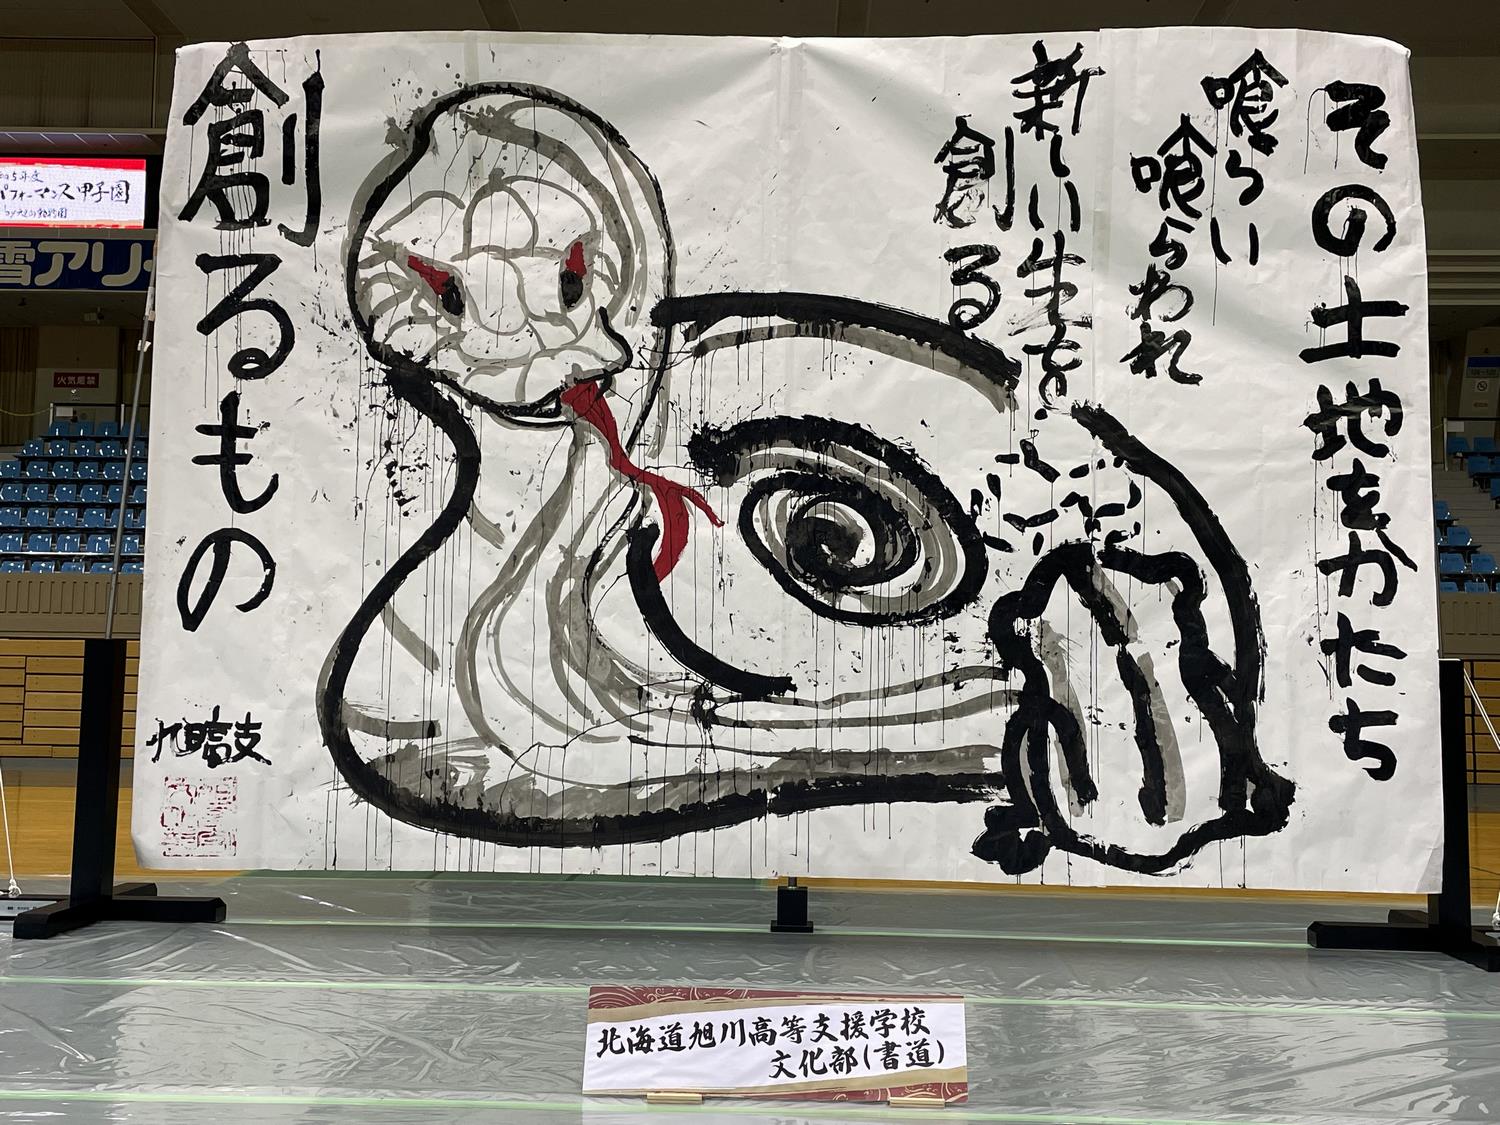 その土地をかたち
喰らい
喰らわれ
新しい生を
創る
創るもの
北海道旭川高等支援学校
文化部(書道)
パフォーマンス甲子園
雪アリ
火気厳禁